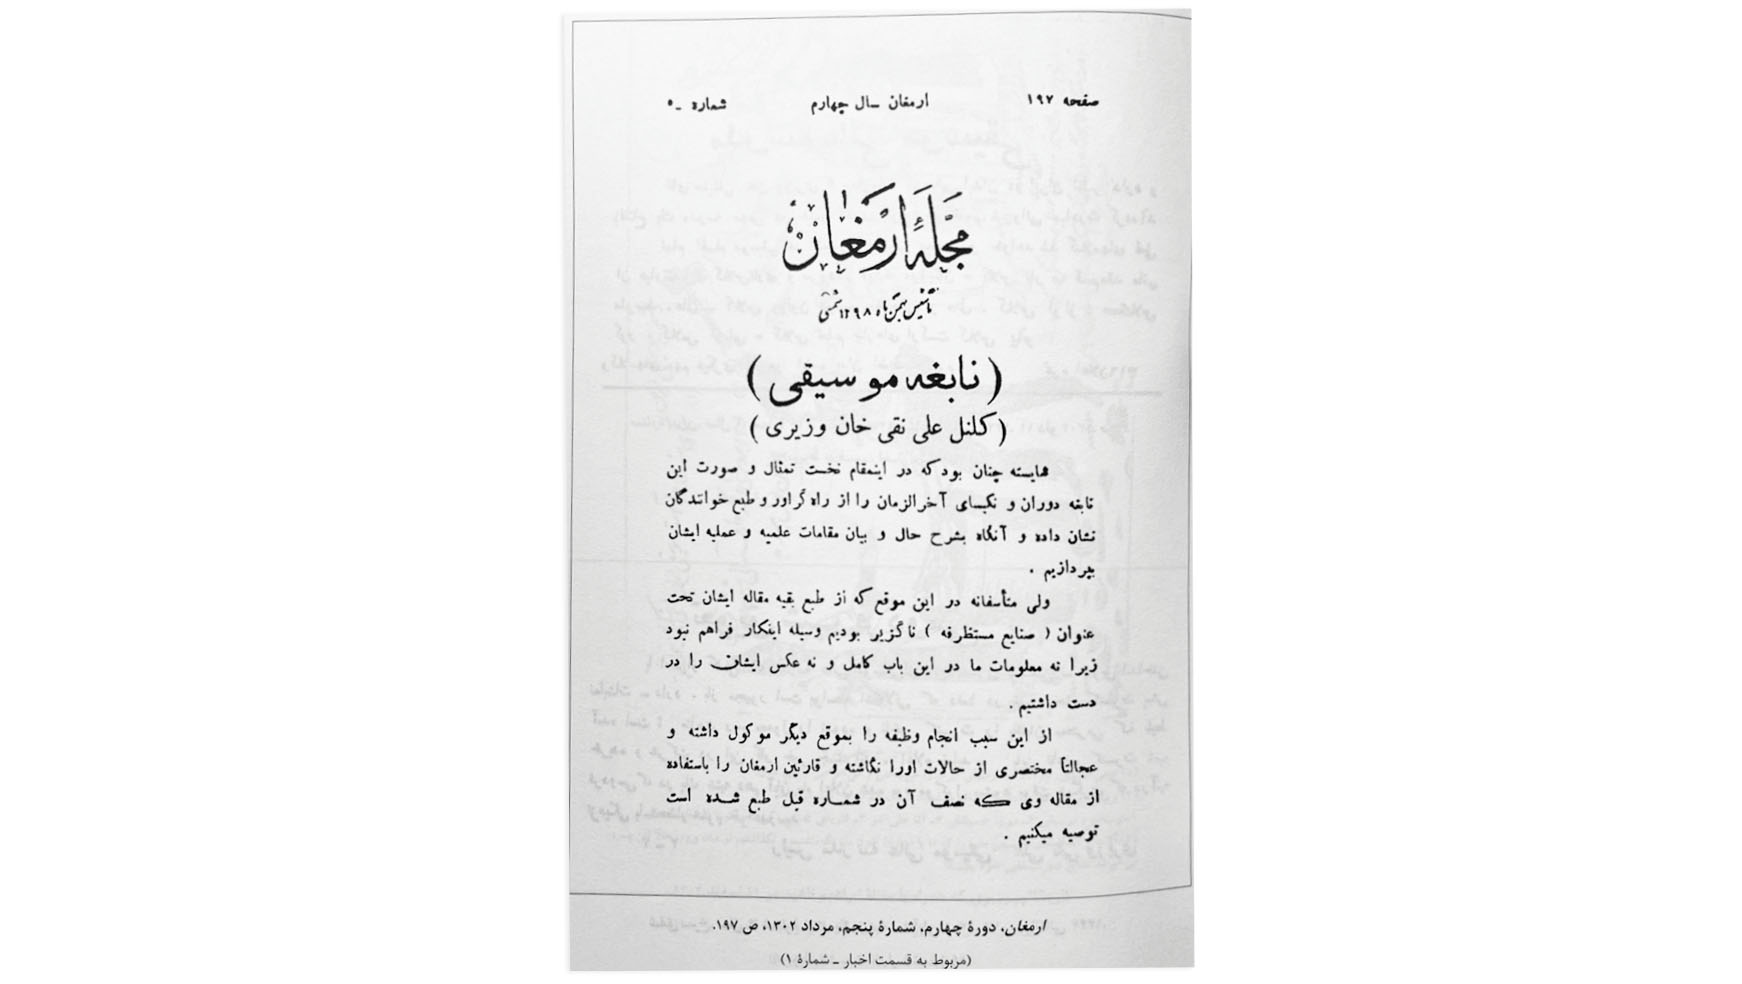 صفحه ۱۹۷ ارمغان ـال چهارم شماره ـ ۵
مجلهٔ ارمغان
تأسیس بهمن ماه ۱۲۹۸ شمسی
(نابغه موسیقی)
(کلنل علی نقی خان وزیری)
شایسته چنان بود که در اینمقام نخست تمثال و صورت این
نابغه دوران و نکیسای آخرالزمان را از راه گراور و طبع خوانندگان
نشان داده و آنگاه بشرح حال و بیان مقامات علمیه و عملیه ایشان
بپردازیم .
ولی متأسفانه در این موقع که از طبع بقیه مقاله ایشان تحت
عنوان ( صنایع مستظرفه ) ناگزیر بودیم وسیله اینکار فراهم نبود
زیرا نه معلومات ما در این باب کامل و نه عکس ایشان را در
دست داشتیم .
از این سبب انجام وظیفه را بموقع دیگر موکول داشته و
عجالتاً مختصری از حالات اورا نگاشته و قارئین ارمغان را باستفاده
از مقاله وی که نصف آن در شماره قبل طبع شده است
توصیه میکنیم .
ارمغان، دورهٔ چهارم، شمارهٔ پنجم، مرداد ۱۳۰۲، ص ۱۹۷.
(مربوط به قسمت اخبار ـ شمارهٔ ۱)